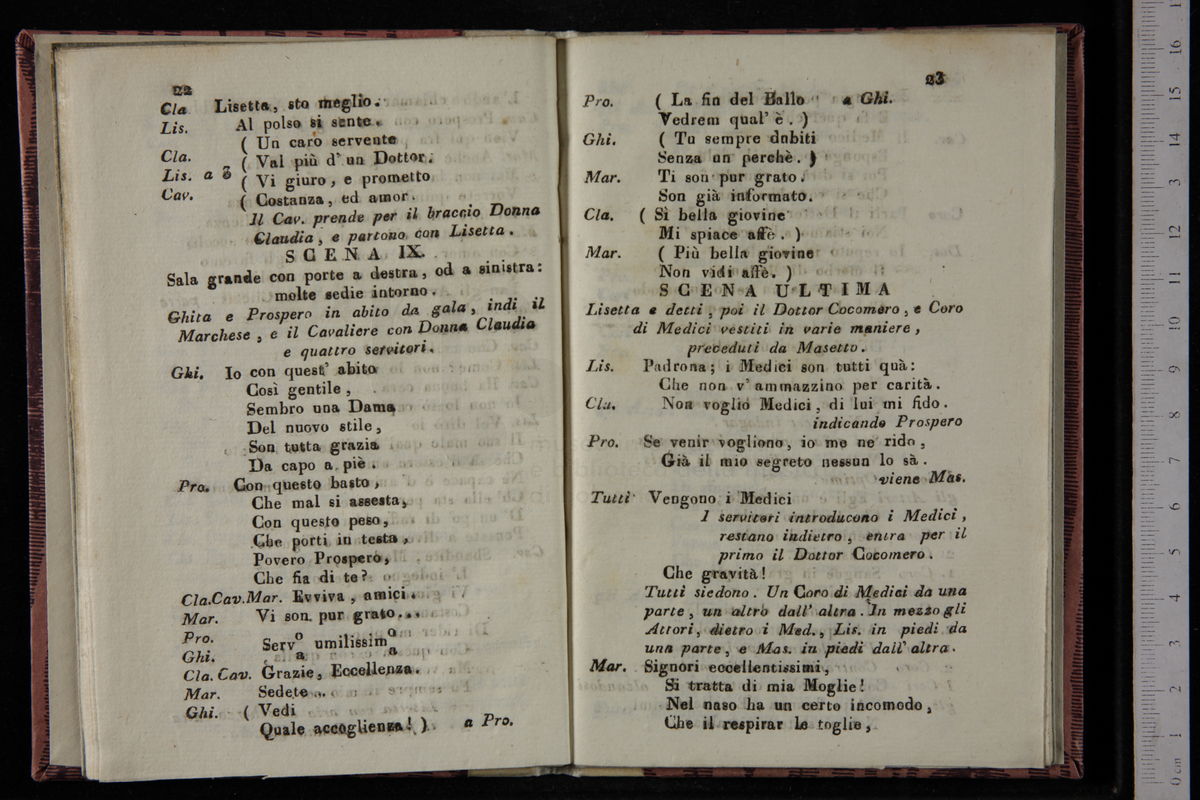 22
Cla Lisetta, sto meglio.
Lis. Al polso si sente.
( Un caro servente
Cla. ( Val più d' un Dottor.
Lis. a 2 ( Vi giuro, e prometto
Cav. ( Costanza, ed amor.
Il Cav. prende per il braccio Donna
Claudia, e partono con Lisetta.
SCENA IX.
Sala grande con porte a destra, od a sinistra:
molte sedie intorno.
Ghita e Prospero in abito da gala, indi il
Marchese, e il Cavaliere con Donna Claudia
e quattro servitori.
Ghi. Io con quest' abito
Così gentile,
Sembro una Dama
Del nuovo stile,
Son tutta grazia
Da capo a piè.
Pro. Con questo basto,
Che mal si assesta,
Con questo peso,
Che porti in testa,
Povero Prospero,
Che fia di te?
Cla.Cav.Mar. Evviva, amici.
Mar. Vi son pur grato...
Pro. o o
Serv umilissim
Ghi. a a
Cla. Cav. Grazie, Eccellenza.
Mar. Sedete..
Ghi. ( Vedi
Quale accoglienza! ) a Pro.
23
Pro. ( La fin del Ballo a Ghi.
Vedrem qual' è. )
Ghi. ( Tu sempre dubiti
Senza un perchè. )
Mar. Ti son pur grato.
Son già informato.
Cla. ( Sì bella giovine
Mi spiace affè. )
Mar. ( Più bella giovine
Non vidi affè. )
SCENA ULTIMA
Lisetta e detti, poi il Dottor Cocomero, e Coro
di Medici vestiti in varie maniere,
preceduti da Masetto.
Lis. Padrona; i Medici son tutti quà:
Che non v' ammazzino per carità.
Cla. Non voglio Medici, di lui mi fido.
indicando Prospero
Pro. Se venir vogliono, io me ne rido,
Già il mio segreto nessun lo sà.
viene Mas.
Tutti Vengono i Medici
I servitori introducono i Medici,
restano indietro, entra per il
primo il Dottor Cocomero.
Che gravità!
Tutti siedono. Un Coro di Medici da una
parte, un altro dall' altra. In mezzo gli
Attori, dietro i Med., Lis. in piedi da
una parte, e Mas. in piedi dall' altra.
Mar. Signori eccellentissimi,
Si tratta di mia Moglie!
Nel naso ha un certo incomodo,
Che il respirar le toglie,
0 cm 1 2 3 4 5 6 7 8 9 10 11 12 13 14 15 16